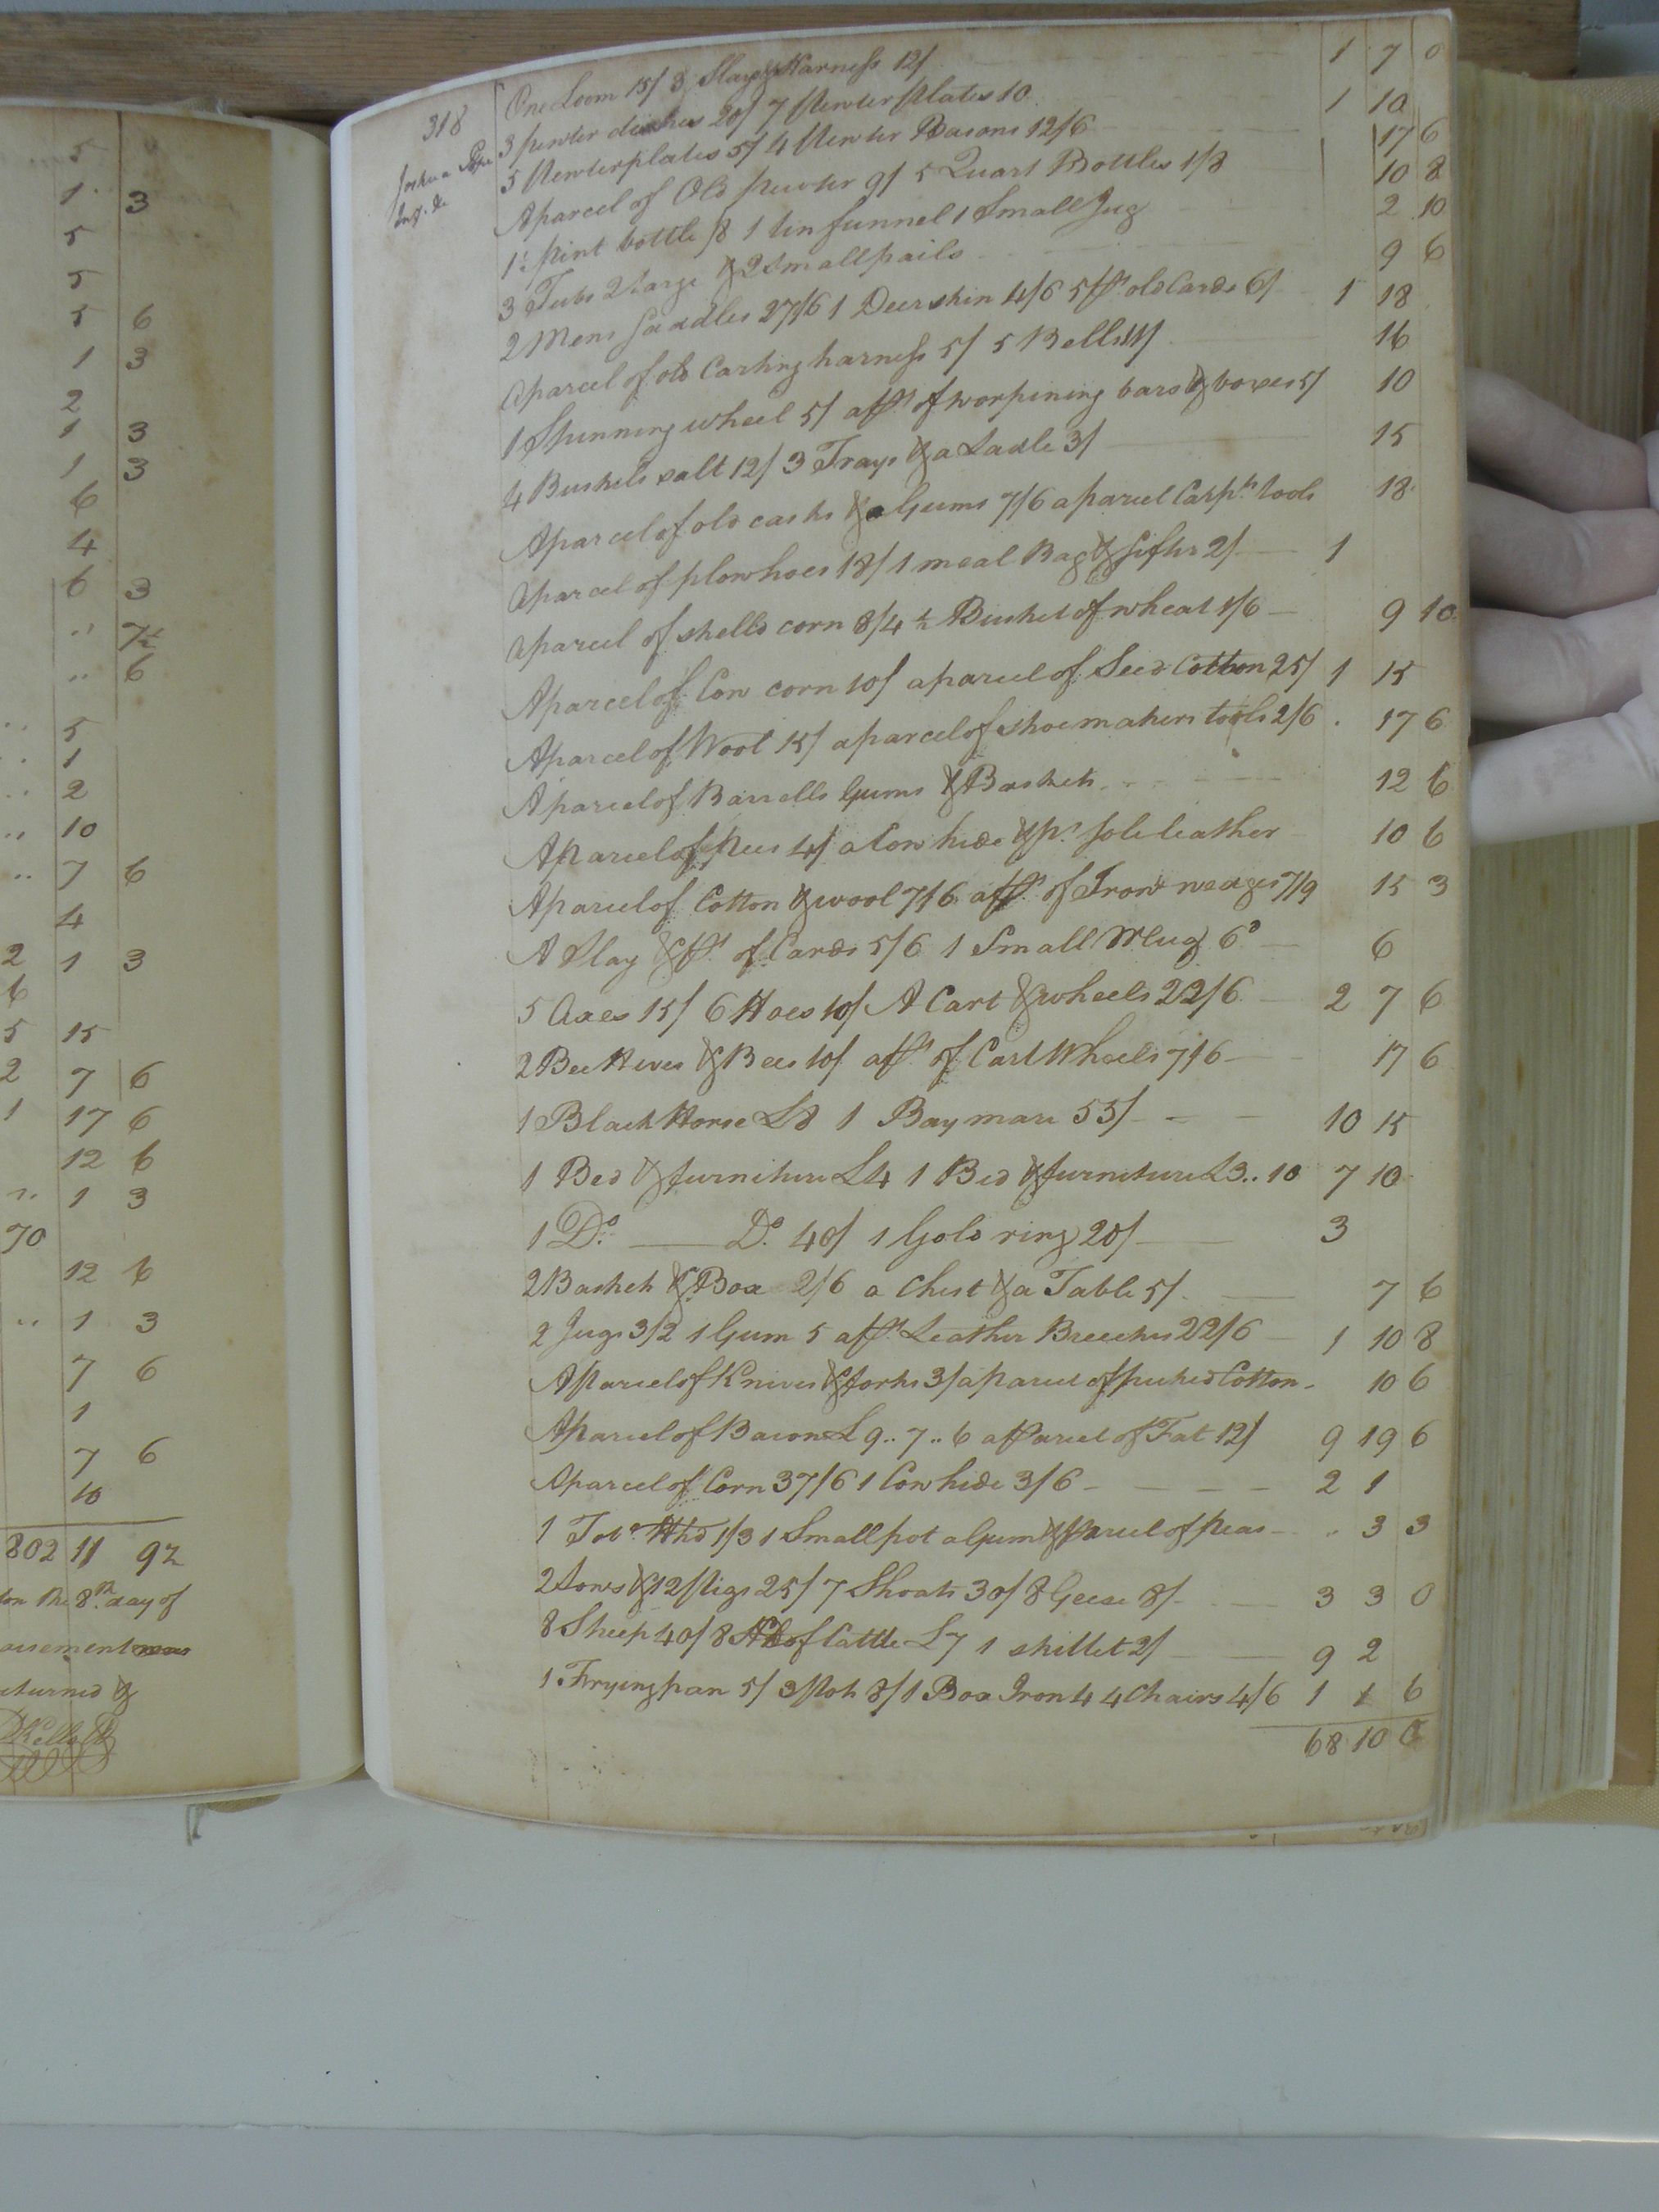 5
1 3
5
5
5 6
1 3
2
1 3
1 3
6
4
6 3
" 7½
" 6
5
1
2
10
7 6
4
2 1 3
6
5 15
2 7 6
1 17 6
12 6
" 1 3
70
12 6
" 1 3
7 6
1
7 6
10
802 11 9½
on the 8th day of
aisement
eturned &
318
Joshua
Inv. &c
One Loom 15/ 3 Slays & Harness 12/ 1 7 0
3 pewter dishes 20/ 7 Pewter plates 10 1 10
5 Pewter plates 5/ 4 Pewter Basons 12/6 17 6
A parcel of Old pewter 9/ 5 Quart Bottles 1/8 10 8
1 pint bottle /8 1 tin funnel 1 Small Jug 2 10
3 Tubs 2 large & 2 Small pails 9 6
2 Mens Saddles 27/6 1 Deer skin 4/6 5 pr old Cards 6/ 1 18
A parcel of old Carting harness 5/ 5 Bells 11/ 16
1 Spinning wheel 5/ a pr of worpining bars & boxes 5/ 10
4 Bushels salt 12/ 3 Trays & a Ladle 3/ 15
A parcel of old casks & Gums 7/6 a parcel Carpr tools 18
A parcel of plow hoes 18/ 1 meal Bag & sifter 2/ 1
A parcel of shelld corn 8/4 ½ Bushel of wheat 1/6 9 10
A parcel of Cow corn 10/ a parcel of Seed Cotton 25/ 1 15
A parcel of Wool 15/ a parcel of shoemakers tools 2/6 17 6
A parcel of Barrells Gums & Baskets 12 6
A Parcel of Peas 4/ a Cow hide & pr sole leather 10 6
A parcel of Cotton & wool 7/6 a pr of Iron wedges 7/9 15 3
A Slay & pr of Cards 5/6 1 Small Mug 6d 6
5 Axes 15/ 6 Hoes 10/ A Cart & wheels 22/6 2 7 6
2 Bee Hives & Bees 10/ a pr of Cart Wheels 7/6 17 6
1 Black Horse £8 1 Bay mare 55/ 10 15
1 Bed & furniture £4 1 Bed & furniture £3..10 7 10
1 Do. Do. 40/ 1 Gold ring 20/ 3
2 Baskets & Box 2/6 a Chest & a Table 5/ 7 6
2 Jugs 3/2 1 Gum 5 a pr Leather Breeches 22/6 1 10 8
A Parcel of Knives & forks 3/ a parcel of picked Cotton 10 6
A Parcel of Bacon £9..7..6 a Parcel of Fat 12/ 9 19 6
A parcel of Corn 37/6 1 Cow hide 3/6 2 1
1 Tobo Hhd 1/3 1 Small pot a Gum & Parcel of peas " 3 3
2 Sows & 12 Pigs 25/ 7 Shoats 30/ 8 Geese 8/ 3 3 0
8 Sheep 40/ 8 Hd of Cattle £7 1 skillet 2/ 9 2
1 Frying pan 5/ 3 Pots 8/ 1 Box Iron 4 4 Chairs 4/6 1 1 6
68 10 0